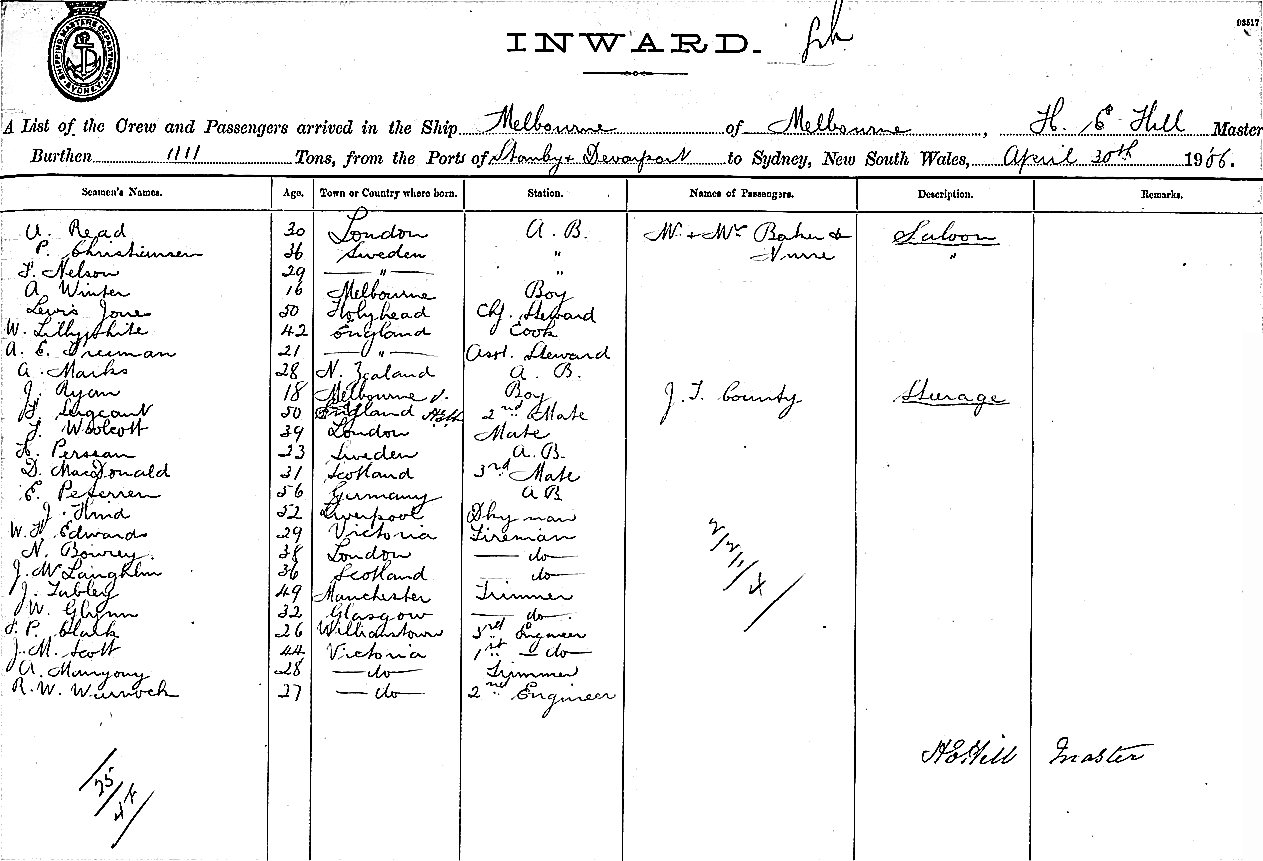 SHIPPING MASTERS DEPARTMENT SYDNEY
03517
INWARD.
A List of the Crew and Passengers arrived in the Ship Melbourne of Melbourne, H. E Hill Master
Burthen 1111 Tons, from the Ports of Devonport to Sydney, New South Wales, April 30th 1906.
Seamen's Names. Age. Town or Country where born. Station. Names of Passengers. Description. Remarks.
A. Read 30 London A. B. Mr + Mrs Baker & Saloon
P. Christiensen 36 Sweden " Nurse "
F. Nelson 29 — " — "
A. Winter 16 Melbourne Boy
Lewis Jones 50 Holyhead Chf. Steward
W. Lillywhite 42 England Cook
A. E. Freeman 21 — " — Asst. Steward
A. Marks 28 N. Zealand A. B.
J. Ryan 18 Melbourne Boy J. T. County Sturage
Sergeant 50 England 2nd Mate
J. Woolcott 39 London Mate
Perssan 23 Sweden A. B.
D. MacDonald 31 Scotland 3rd Mate
E. Petersen 56 Germany A B
J. Hind 52 Liverpool Dkyman
W. H. Edwards 29 Victoria Fireman
N. Bowrey. 38 London — do —
J. McLaughlin 36 Scotland — do —
J. Tubley 49 Manchester Trimmer
W. Glynn 32 Glasgow — do —
P. Clark 26 Williamstown 3rd Engineer
J. M. Scott 44 Victoria 1st — do —
A. 28 — do — Trimmer
R. W. Warnock 27 — do — 2nd Engineer
H E Hill Master
25